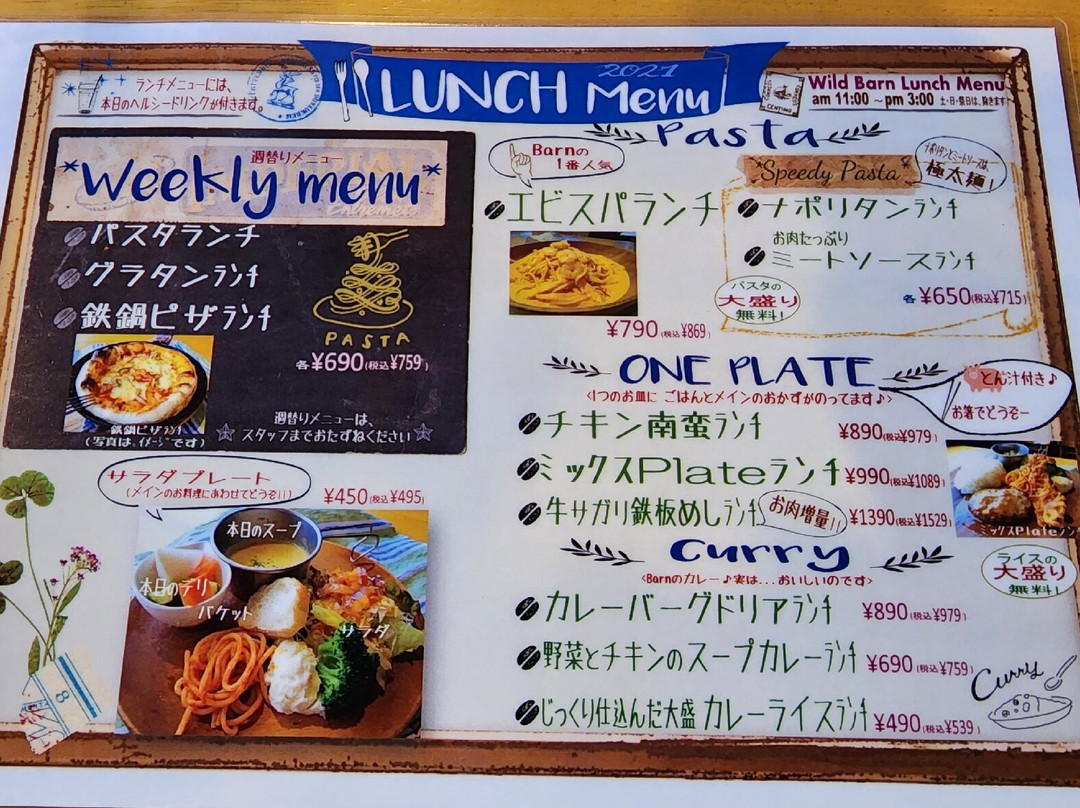 ランチメニューには、
本日のヘルシードリンクが付きます。
LUNCH Menu
2021
Wild Barn Lunch Menu
am 11:00 ～pm 3:00 土・日・祭日は、除きます
週替りメニュー
*Weekly menu*
パスタランチ
グラタンランチ
鉄鍋ピザランチ
PASTA
各¥690(税込¥759)
鉄鍋ピザランチ
(写真は、イメージです)
週替りメニューは、
スタッフまでおたずねください
サラダプレート
(メインのお料理にあわせてどうぞ!!)
¥450(税込¥495)
本日のスープ
本日のデリ
バケット
サラダ
Pasta
Barnの
1番人気
エビスパランチ
¥790(税込¥869)
Speedy Pasta
ナポリタンとミートソースは、
極太麺!
ナポリタンランチ
お肉たっぷり
ミートソースランチ
パスタの
大盛り
無料!
各¥650(税込¥715)
ONE PLATE
<1つのお皿に ごはんとメインのおかずがのってます♪>
とん汁付き♪
お箸でどうぞー
チキン南蛮ランチ
¥890(税込¥979)
ミックスPlateランチ
¥990(税込¥1089)
牛サガリ鉄板めしランチ
お肉増量!!
¥1390(税込¥1529)
ミックスPlateラン
Curry
<Barnのカレー♪実は...おいしいのです>
ライスの
大盛り
無料!
カレーバーグドリアランチ
¥890(税込¥979)
野菜とチキンのスープカレーランチ
¥690(税込¥759)
じっくり仕込んだ大盛カレーライスランチ
¥490(税込¥539)
Curry
8